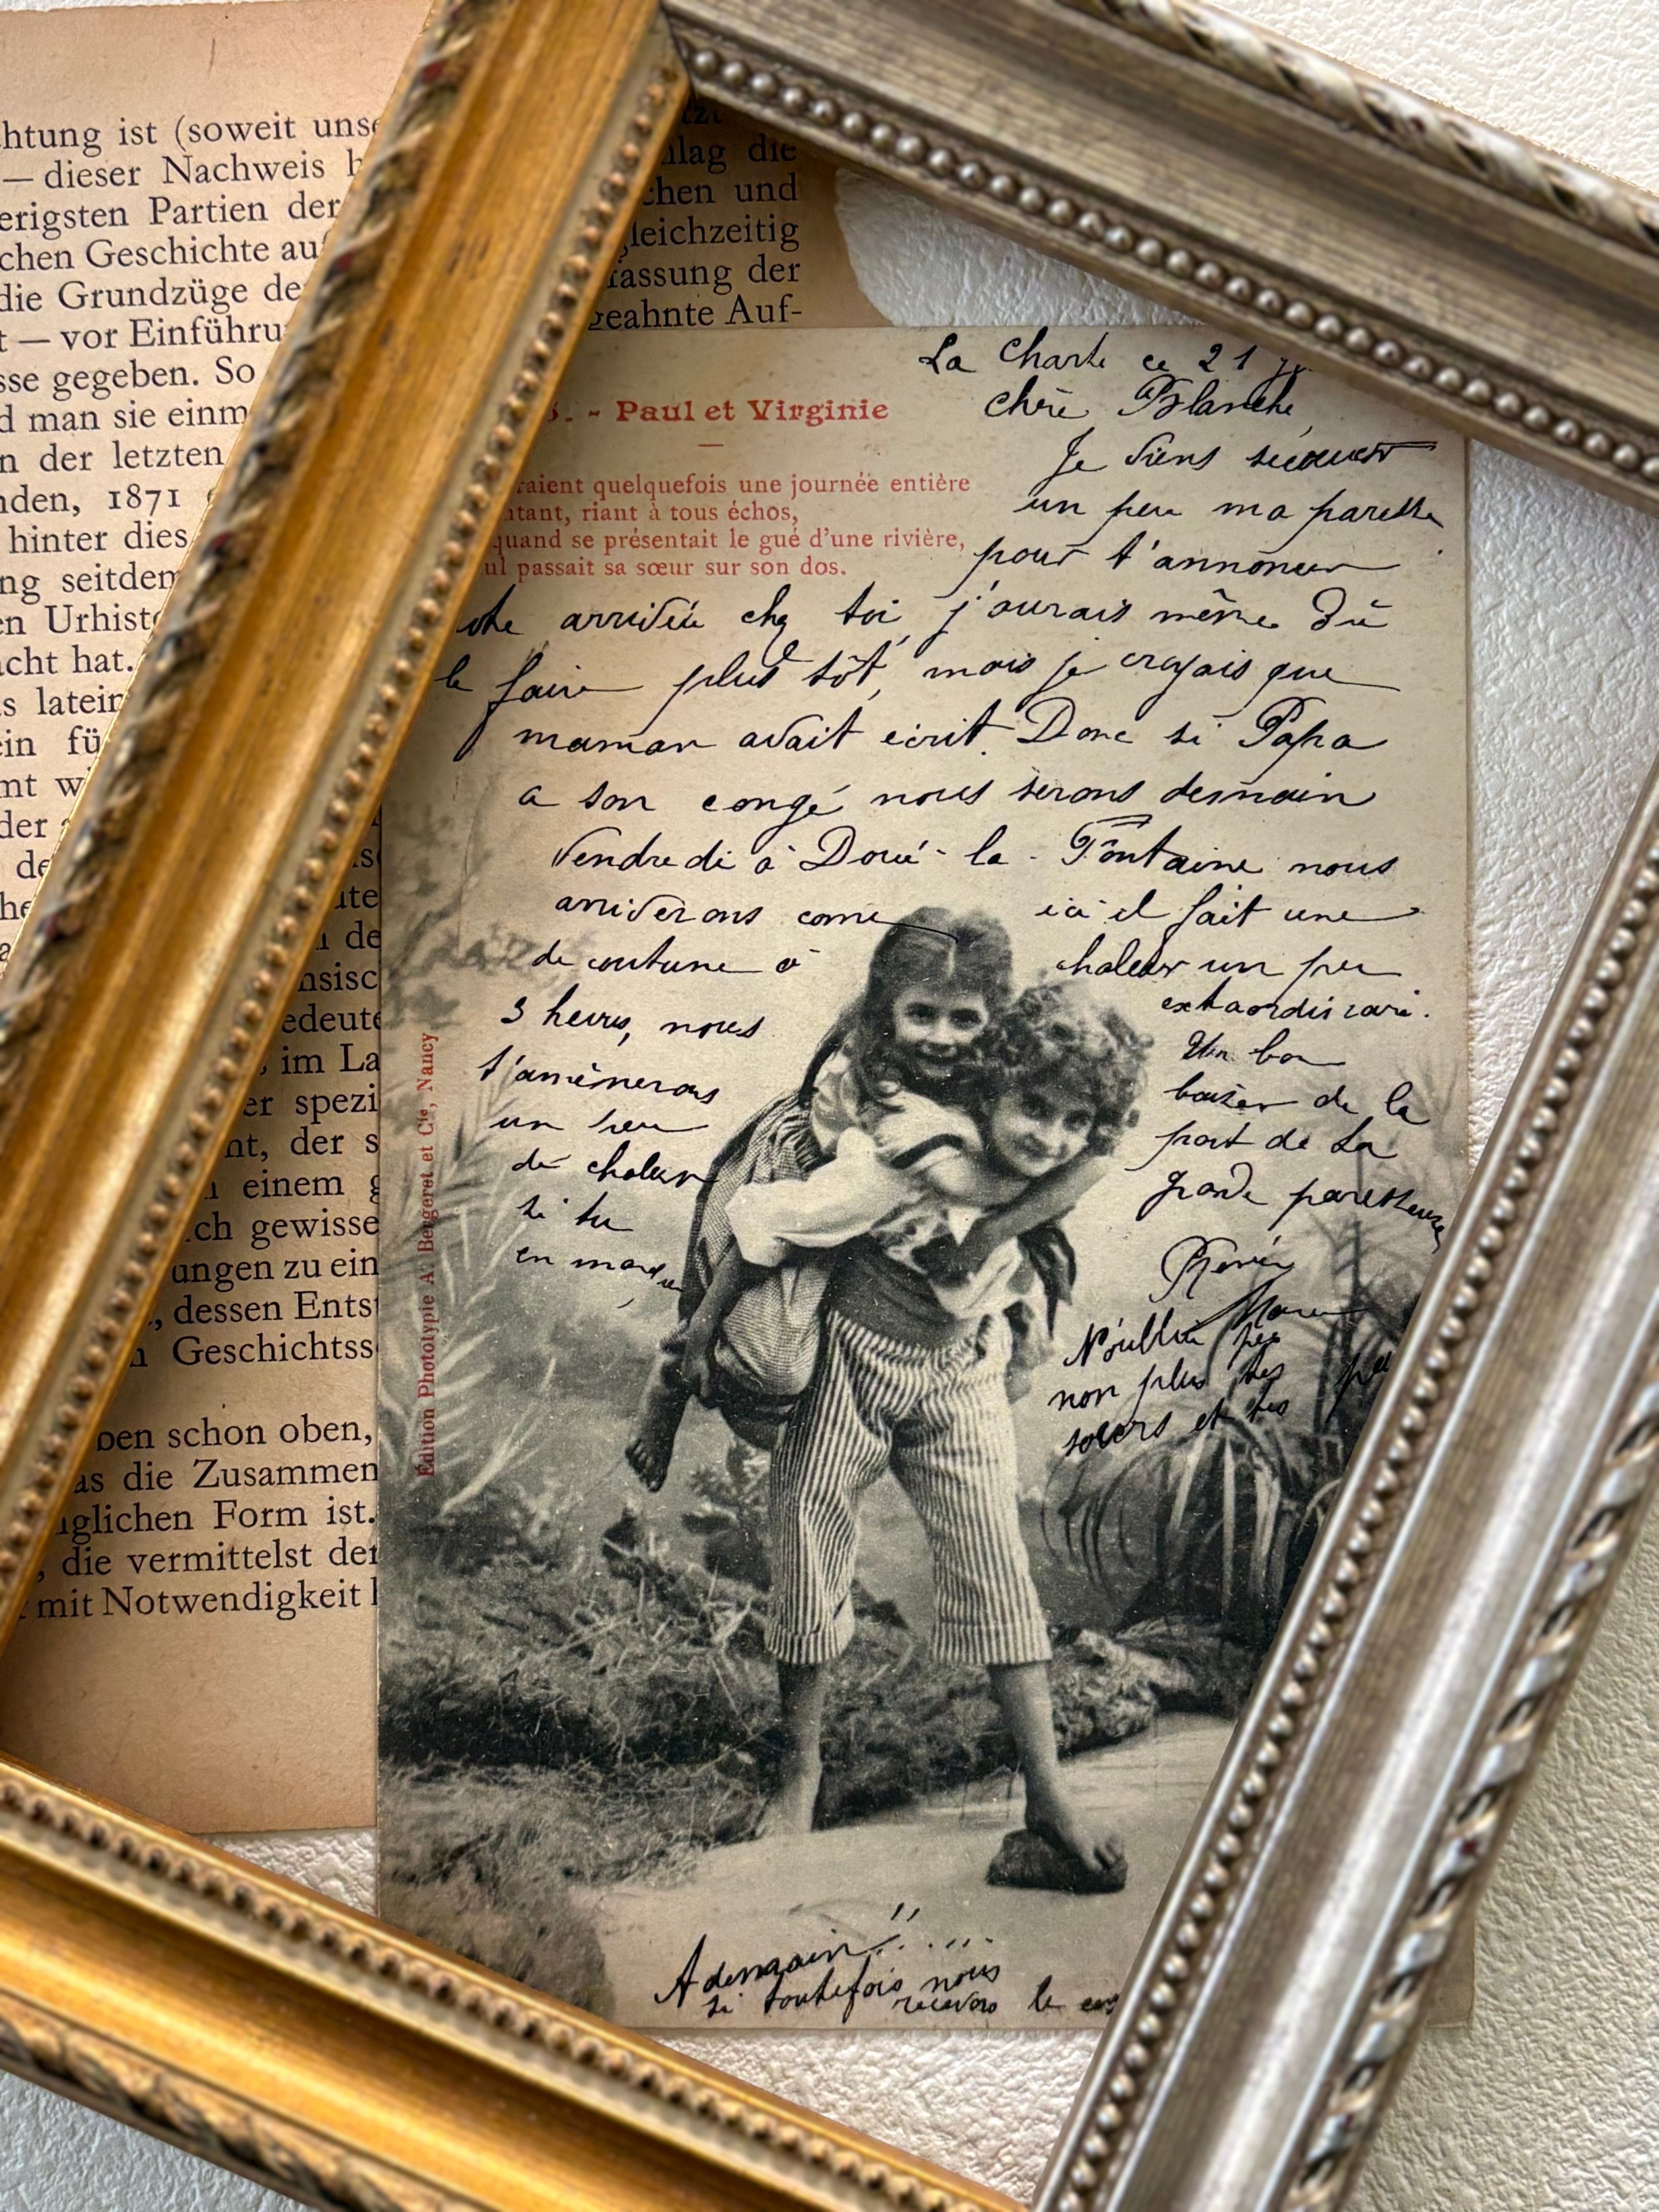 htung ist (soweit uns
— dieser Nachweis
erigsten Partien der
chen Geschichte au
die Grundzüge de
t — vor Einführu
sse gegeben. So
d man sie einm
n der letzten
nden, 1871
hinter dies
ng seitdem
en Urhist
acht hat.
s latein
ein fü
mt w
der
de
he
lag die
chen und
gleichzeitig
fassung der
geahnte Auf-
ute
de
nsisc
edeute
im La
er spezi
nt, der s
einem g
ch gewisse
ungen zu ein
, dessen Ents
n Geschichtss
ben schon oben,
as die Zusammen
glichen Form ist.
, die vermittelst der
mit Notwendigkeit
- Paul et Virginie
raient quelquefois une journée entière
ntant, riant à tous échos,
quand se présentait le gué d'une rivière,
ul passait sa sœur sur son dos.
Édition Photolypie A. Bergeret et Cie, Nancy
La Charte ce 21
chère Blanche,
Je viens secouer
un peu ma paresse
pour t'annoncer
arrivée chez toi, j'aurais même dû
le faire plus tôt, mais je croyais que
maman avait écrit. Donc si Papa
a son congé nous serons demain
Vendredi à Doué-la-Fontaine nous
arriverons come
de coutume à
3 heures, nous
t'amènerons
un peu
de chaleur
si tu
en manques
ici il fait une
chaleur un peu
extraordinaire.
Un bon
baiser de la
part de la
grande paresseuse
N'oublie pas
non plus tes
soeurs et tes
A demain!!....
si toutefois nous
recevons le